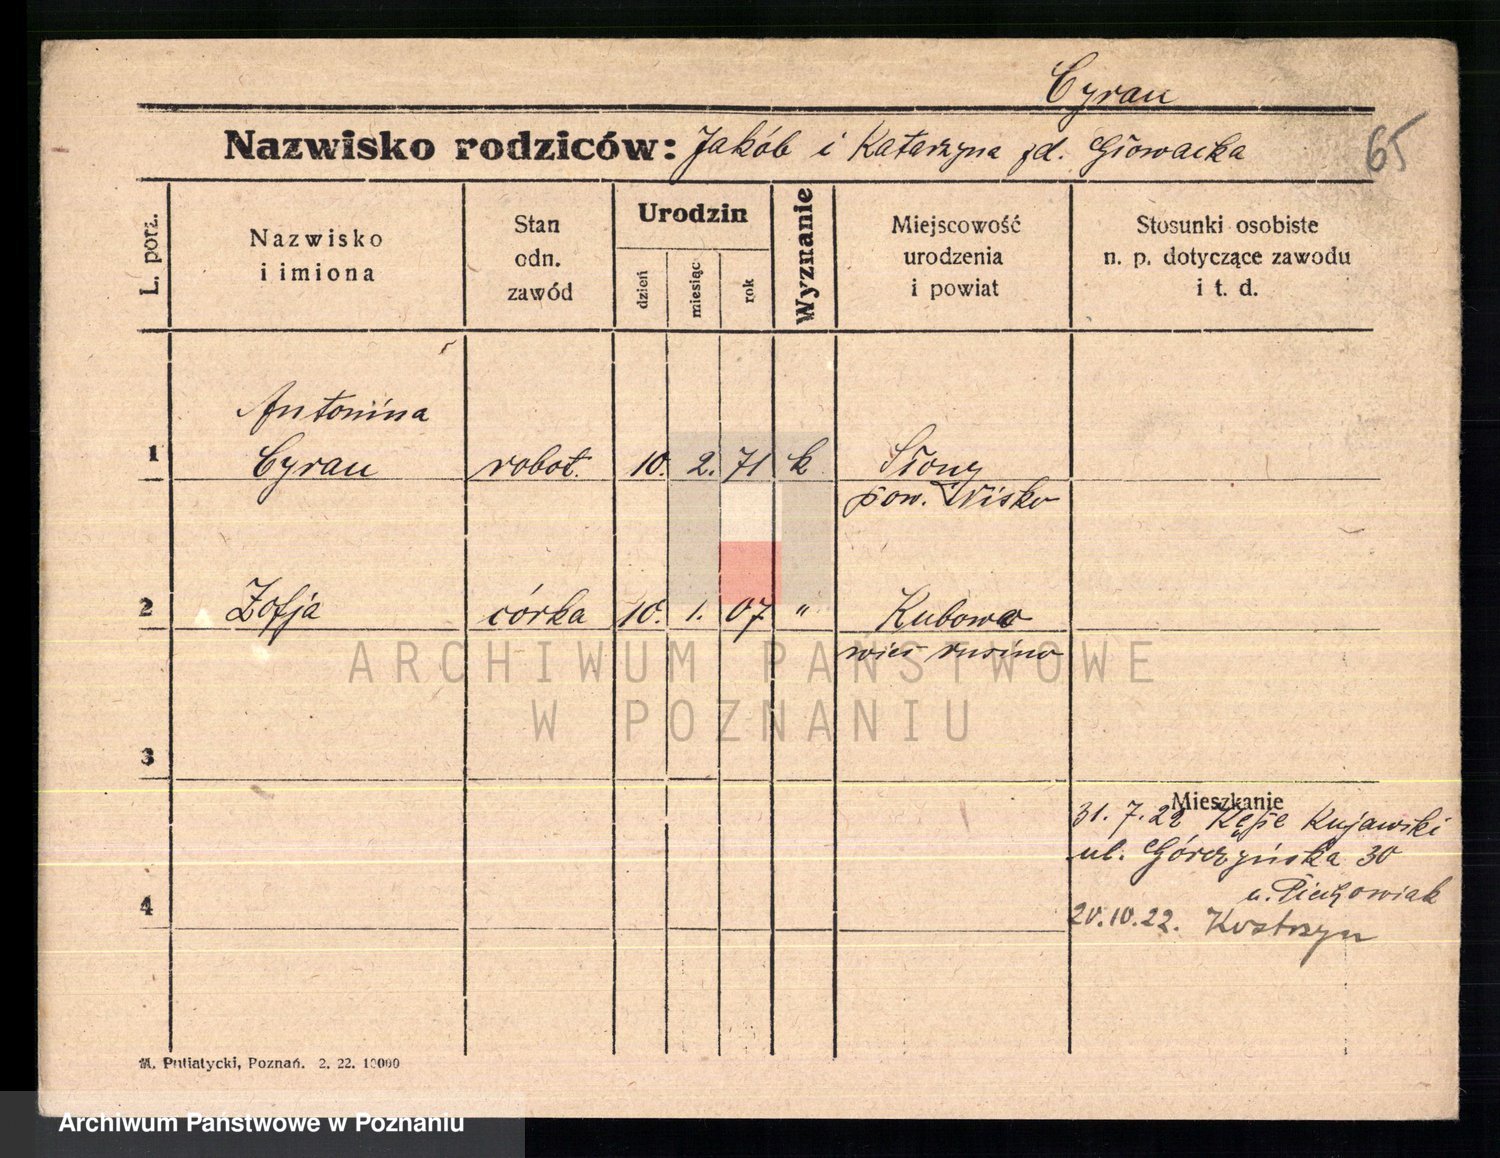 Cyran
Nazwisko rodziców: Jakób i Katarzyna zd. Głowacka
65
L. porz.
Nazwisko
i imiona
Stan
odn.
zawód
Urodzin
dzień
miesiąc
rok
Wyznanie
Miejscowość
urodzenia
i powiat
Stosunki osobiste
n. p. dotyczące zawodu
i t. d.
Antonina
1 Cyran robot. 10. 2. 71 k Słony
pow. Nisko
2 Zofja córka 10. 1. 07 " Kubowo
wieś rusino
ARCHIWUM PAŃSTWOWE
W POZNANIU
3
Mieszkanie
31. 7. 22 Kępe Kujawski
ul. Górczyńska 30
u. Piechowiak
4
20.10.22. Kostrzyn
M. Putiatycki, Poznań. 2. 22. 10000
Archiwum Państwowe w Poznaniu